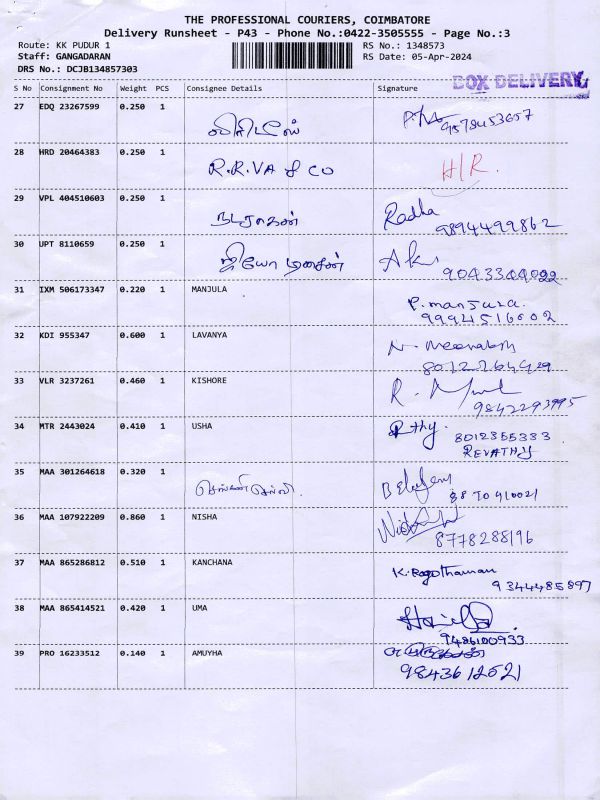 THE PROFESSIONAL COURIERS, COIMBATORE
Delivery Runsheet - P43 - Phone No.:0422-3505555 - Page No.:3
Route: KK PUDUR 1 RS No.: 1348573
Staff: GANGADARAN RS Date: 05-Apr-2024
DRS No.: DCJB134857303
BOX DELIVERY
S No Consignment No Weight PCS Consignee Details Signature
27 EDQ 23267599 0.250 1
9578453657
28 HRD 20464383 0.250 1
R.R.VA & CO H/R.
29 VPL 404510603 0.250 1
நடராகன் Radha
9894499862
30 UPT 8110659 0.250 1
ஜியோ
9043344022
31 IXM 506173347 0.220 1 MANJULA
P.manjula.
9994516002
32 KDI 955347 0.600 1 LAVANYA
N.
33 VLR 3237261 0.460 1 KISHORE
R.
9842293995
34 MTR 2443024 0.410 1 USHA
8012355333
REVATHY
35 MAA 301264618 0.320 1
36 MAA 107922209 0.860 1 NISHA
8778288196
37 MAA 865286812 0.510 1 KANCHANA
K.Ragothaman
9344485897
38 MAA 865414521 0.420 1 UMA
9486100933
39 PRO 16233512 0.140 1 AMUYHA
9843612521